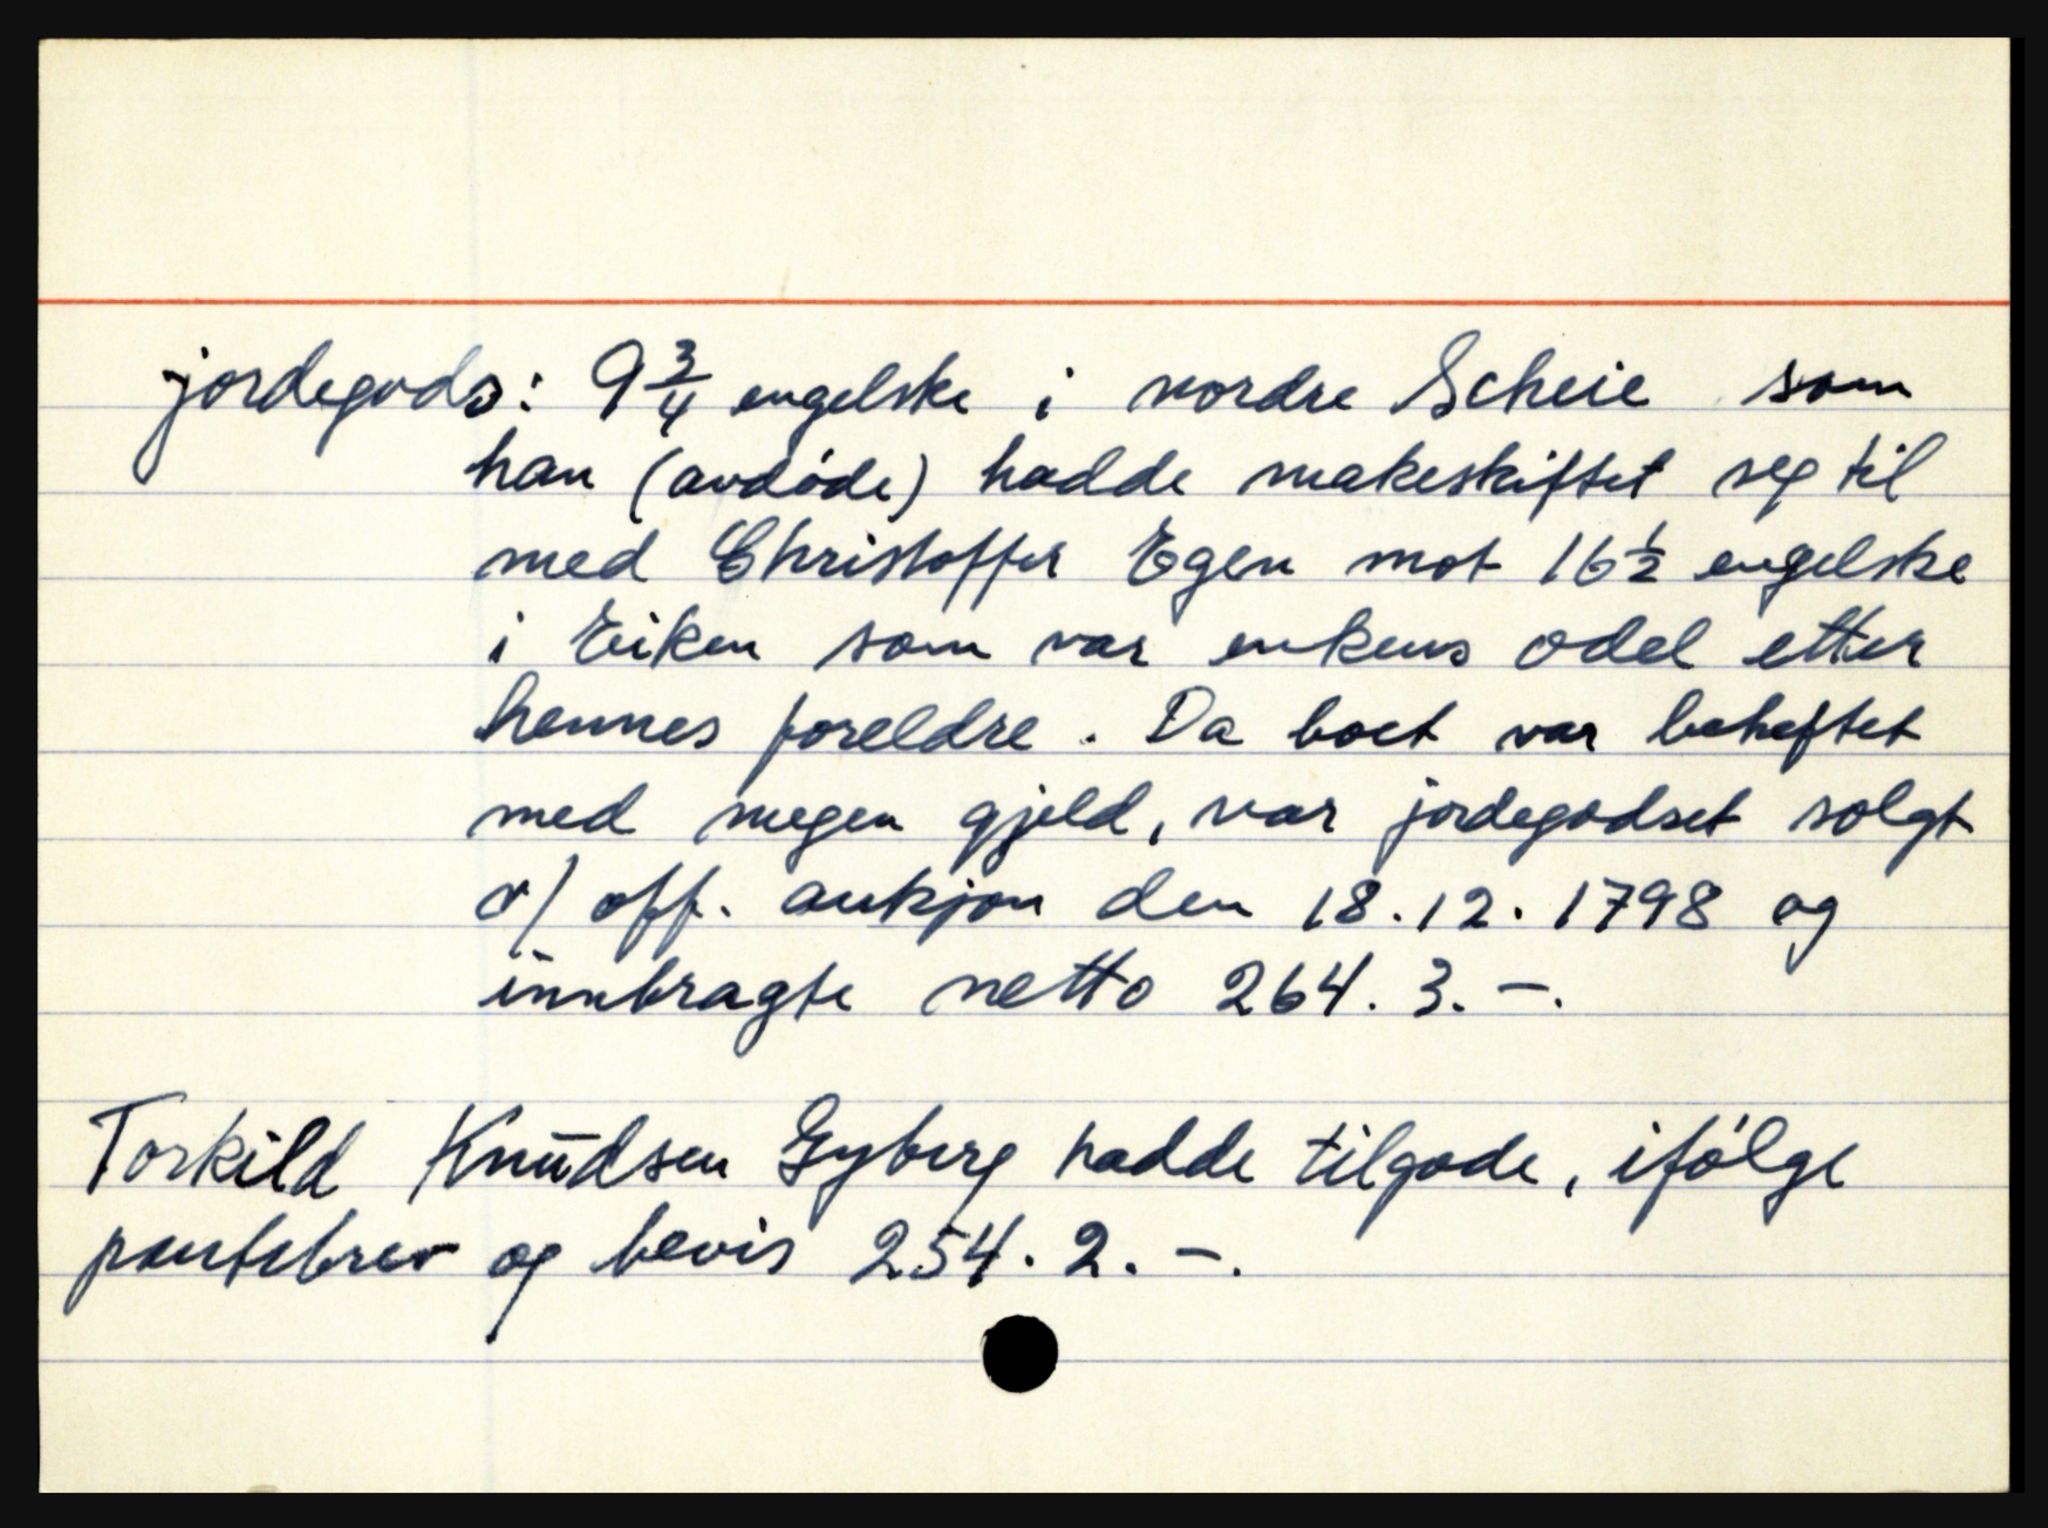 jordegods: 9 3/4 engelske i nordre Scheie som
han (avdøde) hadde makeskiftet seg til
med Christoffer Egen mot 16 1/2 engelske
i Eiken som var enkens odel etter
hennes foreldre. Da boet var beheftet
med megen gjeld, var jordegodset solgt
v/ off. aukjon den 18.12.1798 og
innbragte netto 264. 3. -.
Torkild Knudsen Gyberg hadde tilgode, ifølge
pantebrev og bevis 254. 2. -.